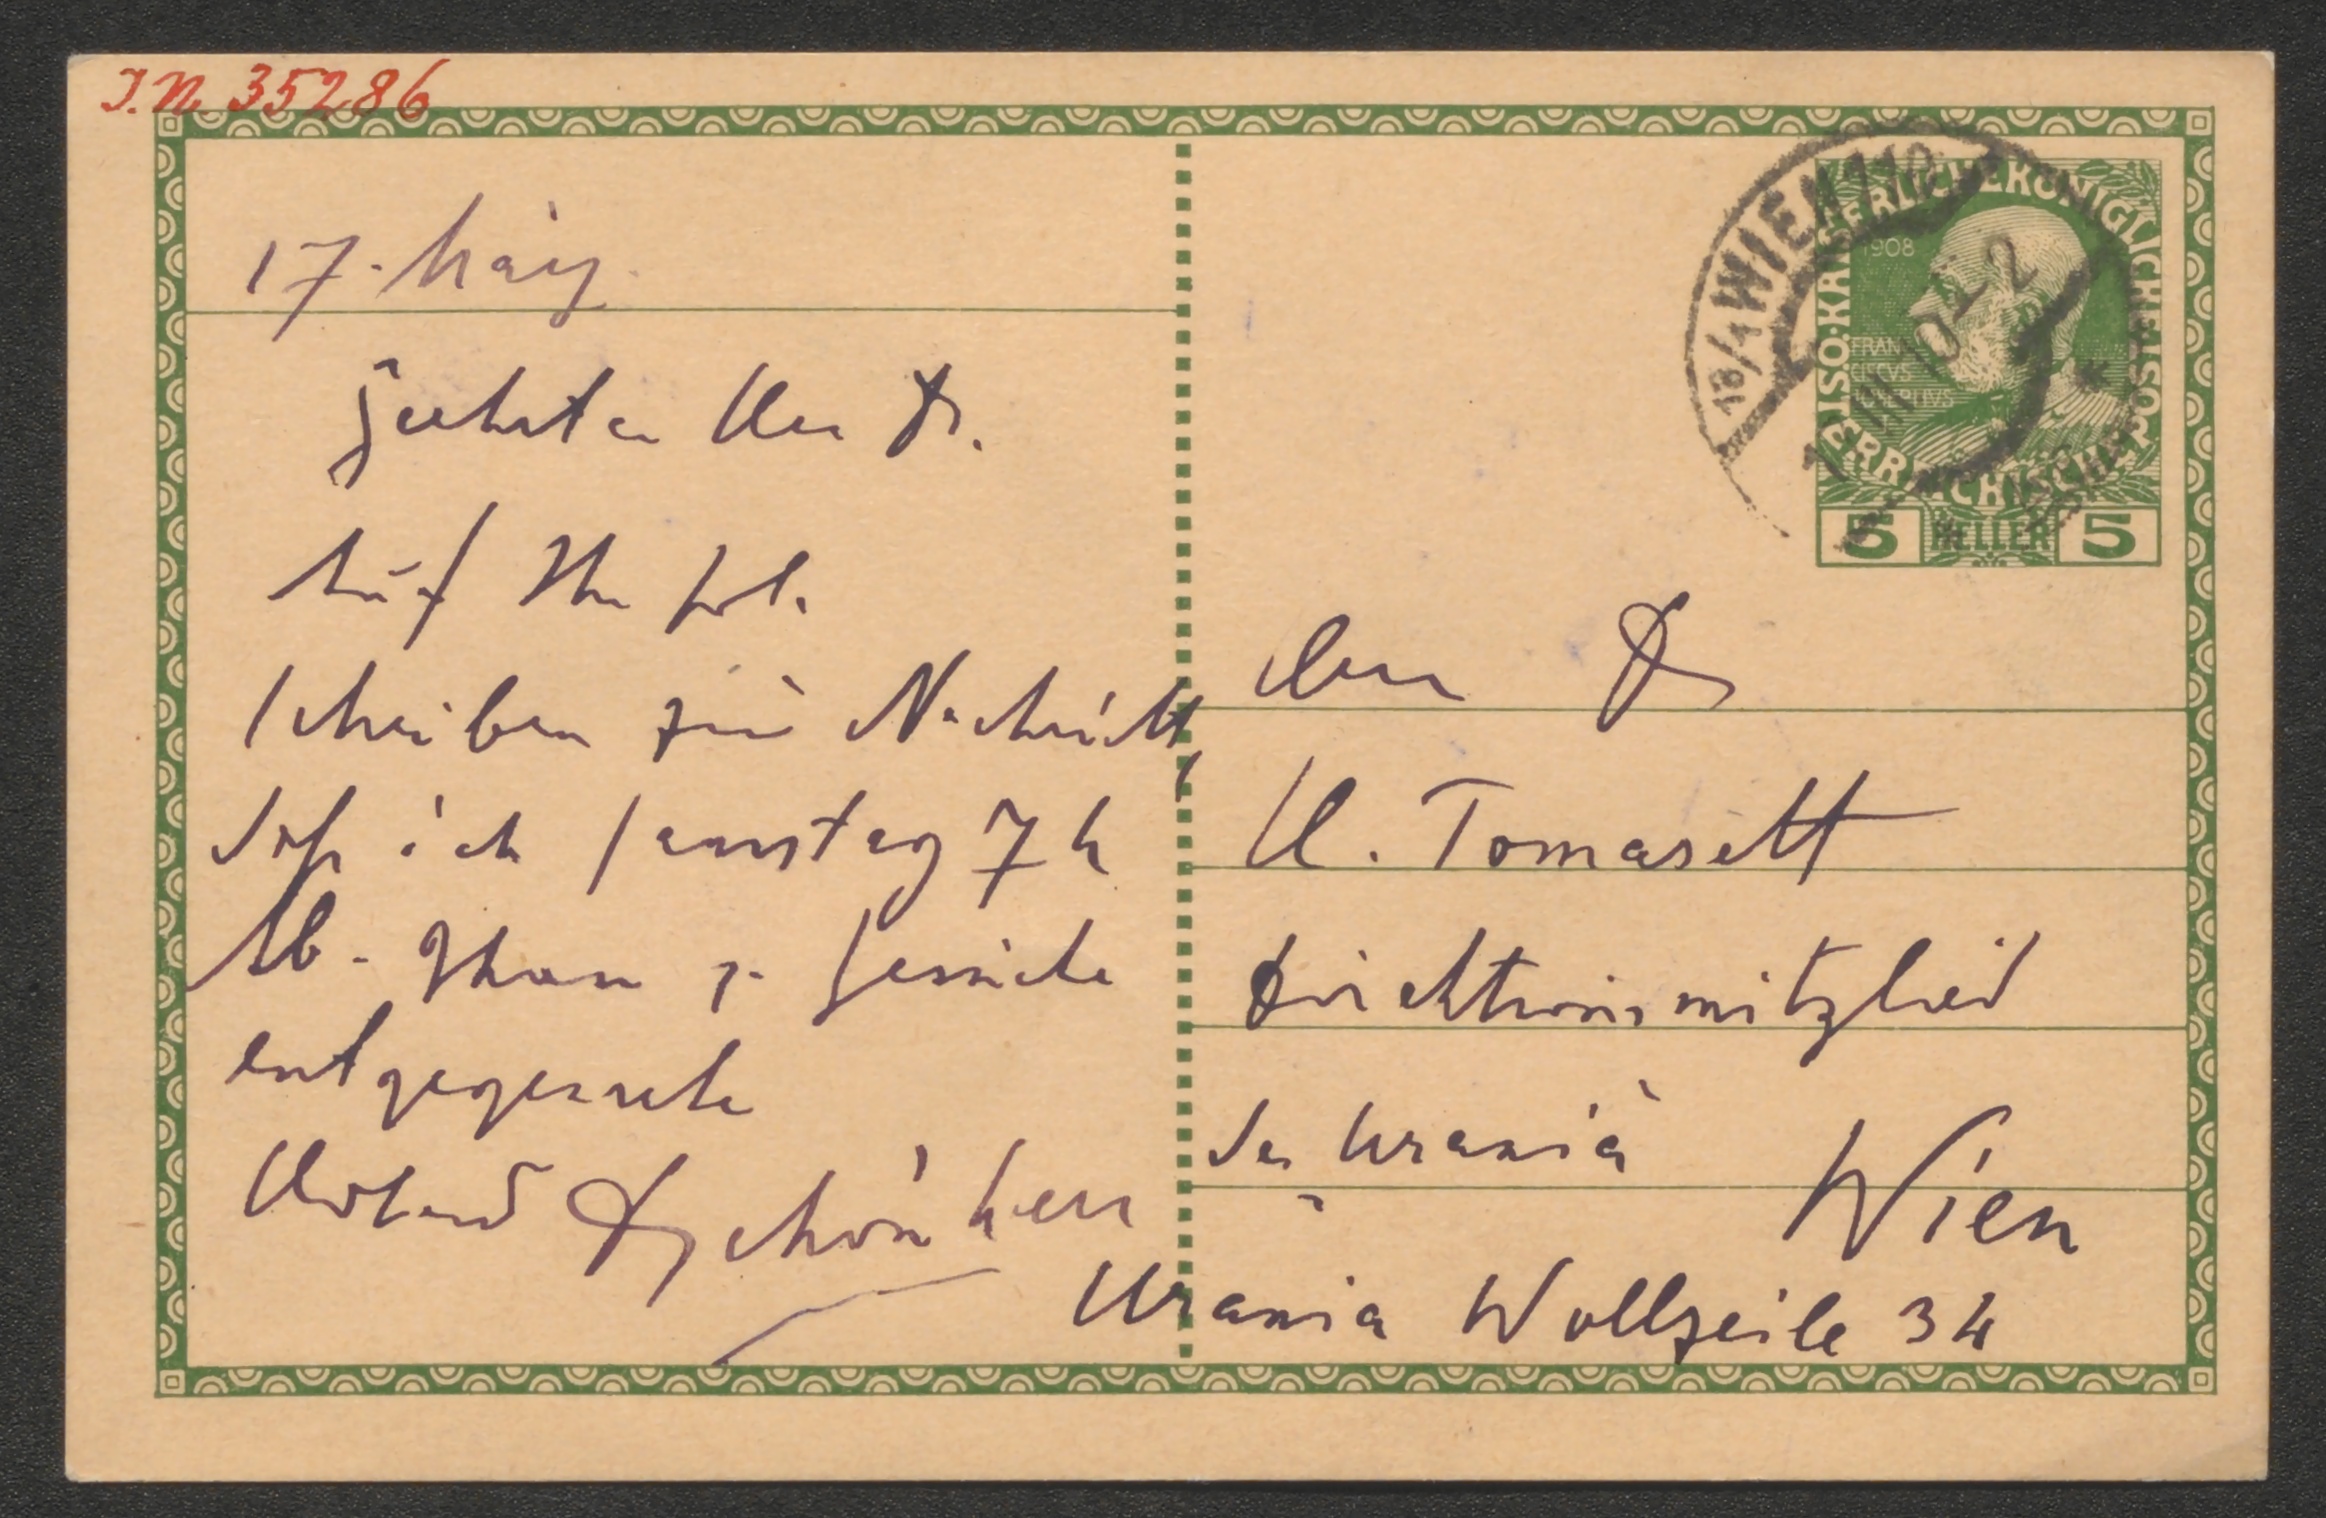 I.N. 35286
17. März
Geehrter Herr Dr.
Auf Ihr frdl.
Schreiben zur Nachricht,
daß ich Samstag 7 h
Ab. Ihrem Besuche
entgegensehe
Hochacht Dr Schönherr
WIEN
1912
KAISERLICHE KÖNIGLICHE
ÖSTERREICHISCHE POST
1908
FRAN
CISCVS
5 HELLER 5
Herrn Dr
H. Tomasett
Direktionsmitglied
der Urania
Wien
Urania Wollzeile 34